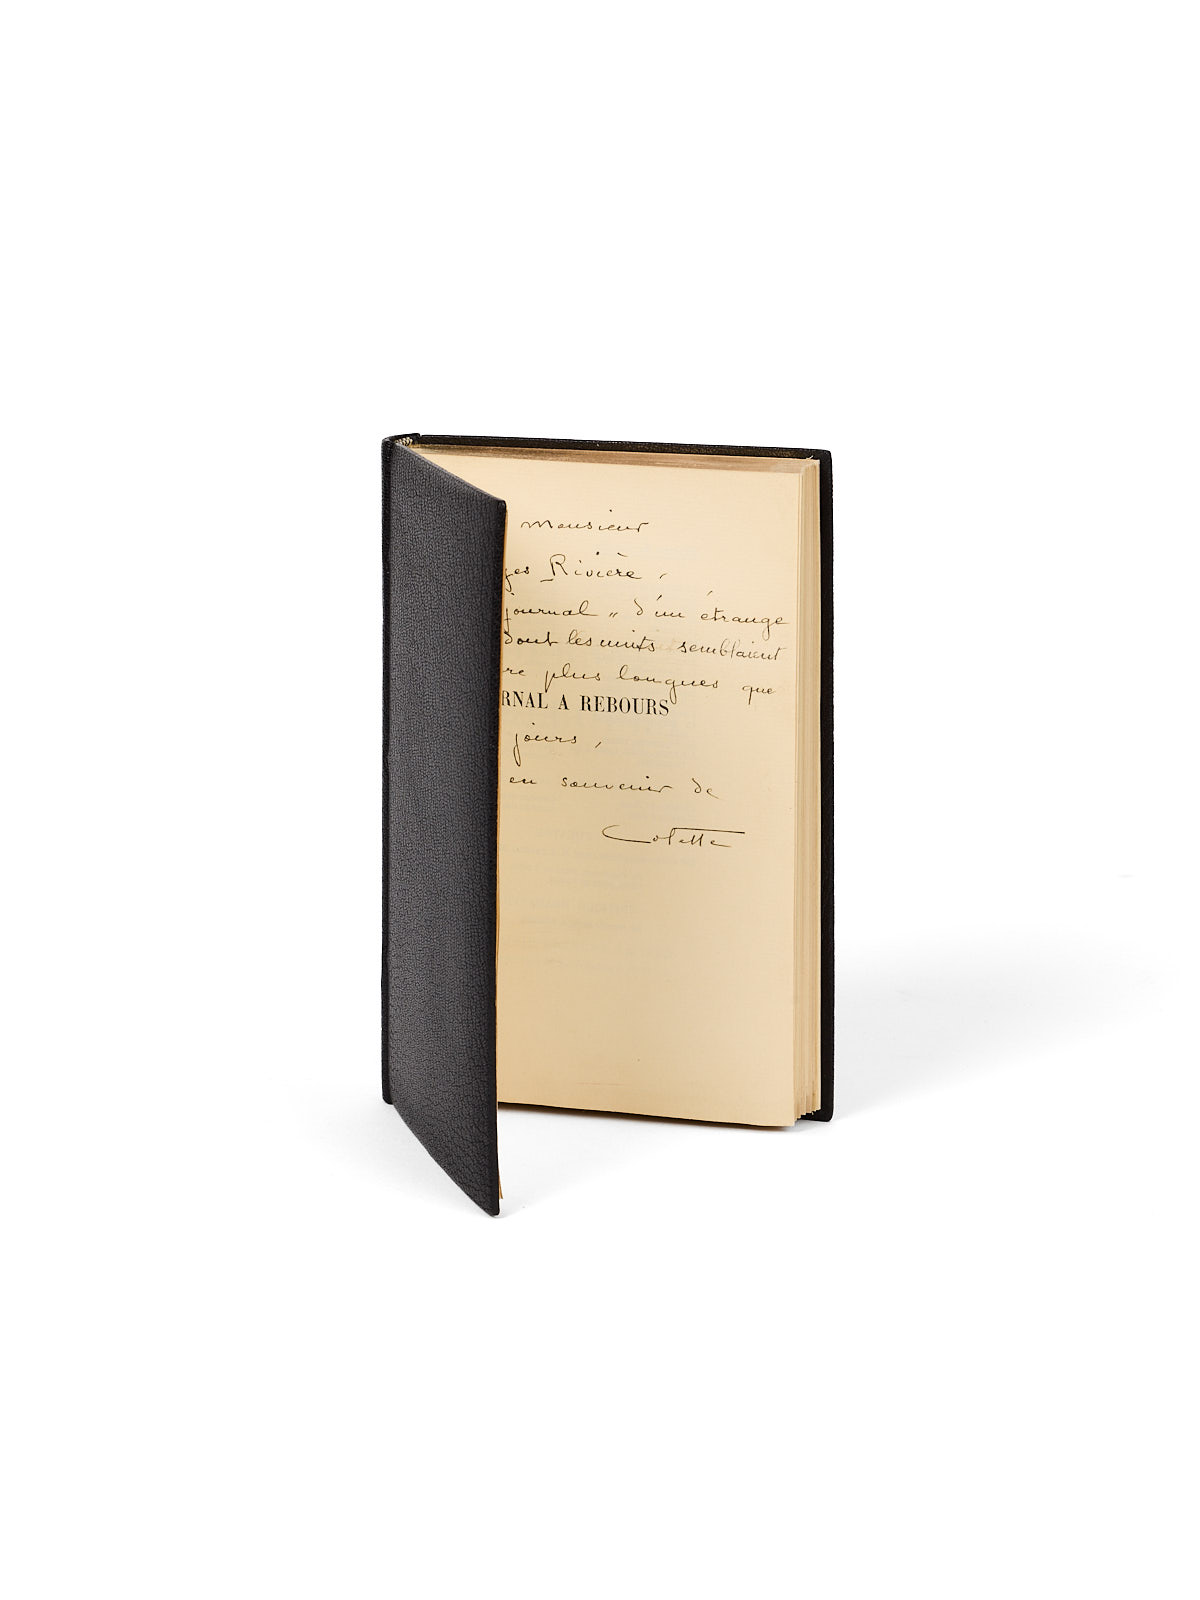 Monsieur
ges Rivière,
journal „ d'un étrange
dont les nuits semblaient
re plus longues que
RNAL A REBOURS
jours,
en souvenir de
Colette